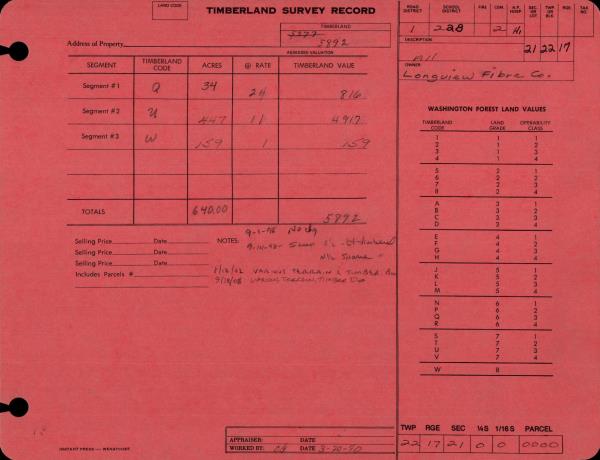 LAND CODE
TIMBERLAND SURVEY RECORD
TIMBERLAND
5277
Address of Property 5892
ASSESSED VALUATION
SEGMENT TIMBERLAND CODE ACRES @ RATE TIMBERLAND VALUE
Segment #1 Q 34 24 816
Segment #2 U 447 11 4917
Segment #3 W 159 1 159
TOTALS 640.00 5892
Selling Price Date
Selling Price Date
Selling Price Date
Includes Parcels #
NOTES: 9-1-98
8/12/02 VARIOUS TERRAIN & TIMBER
9/18/08 VARIOUS TERRAIN, TIMBER
ROAD DISTRICT SCHOOL DISTRICT FIRE CEM. H.P. HOSP. SEC OR LOT TWP OR BLK RGE TAX NO.
1 228 2 H1 21 22 17
DESCRIPTION
All
OWNER
Longview Fibre Co.
WASHINGTON FOREST LAND VALUES
TIMBERLAND CODE LAND GRADE OPERABILITY CLASS
1 1 1
2 1 2
3 1 3
4 1 4
5 2 1
6 2 2
7 2 3
8 2 4
A 3 1
B 3 2
C 3 3
D 3 4
E 4 1
F 4 2
G 4 3
H 4 4
J 5 1
K 5 2
L 5 3
M 5 4
N 6 1
P 6 2
Q 6 3
R 6 4
S 7 1
T 7 2
U 7 3
V 7 4
W 8
APPRAISER: DATE
WORKED BY: DATE 3-20-90
INSTANT PRESS — WENATCHEE
TWP RGE SEC ¼S 1/16S PARCEL
22 17 21 0 0 0000